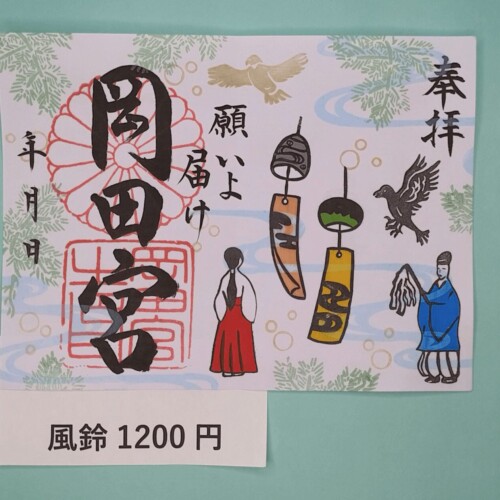 奉拝
願いよ
届け
岡田宮
年月日
風鈴 1200 円